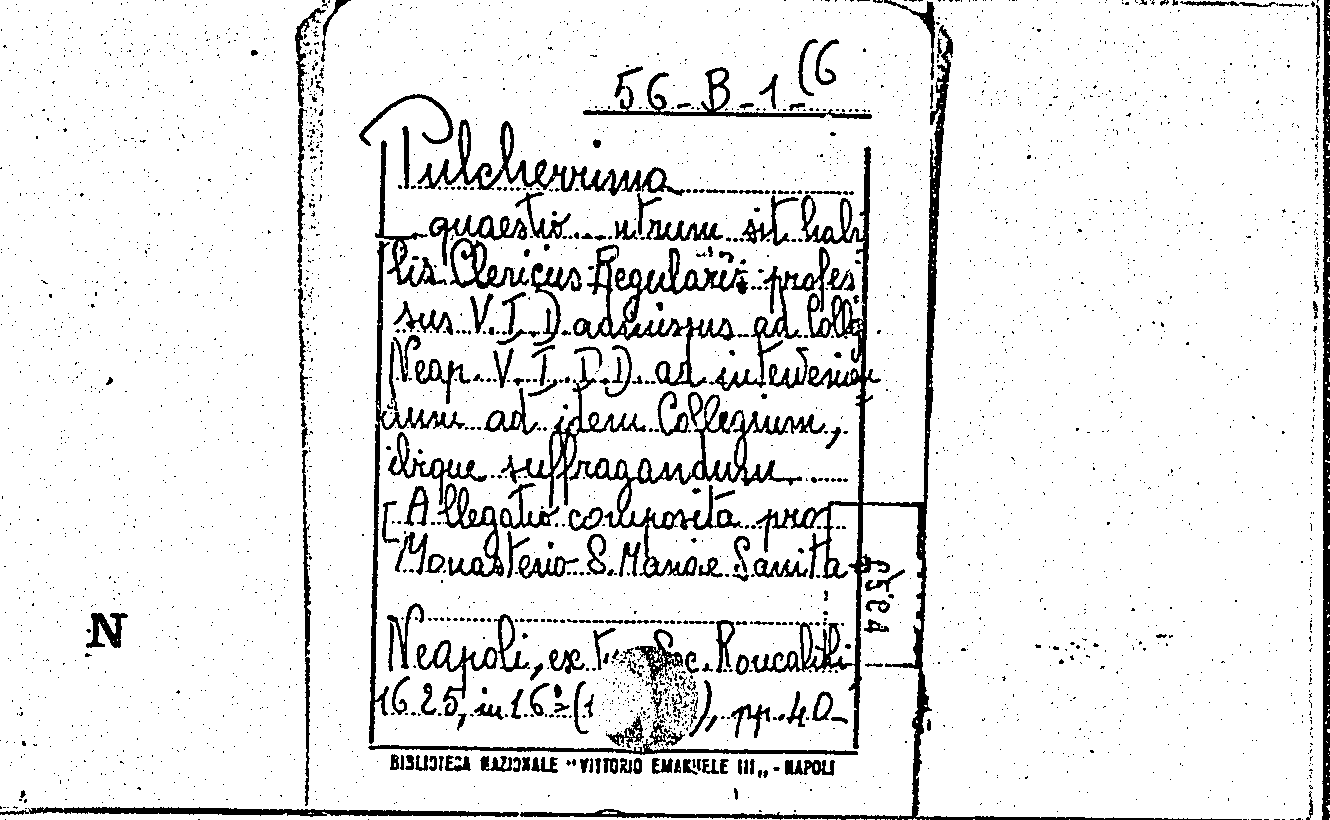 56-B-1-(6
Pulcherrima
quaestio utrum sit habi
lis Clericus Regularis profes
sus V.I.D. admissus ad Colleg.
Neap. V.I.D.D. ad intervenien
dum ad idem Collegium,
ibique suffragandum.
[Allegatio composita pro
Monasterio S. Mariae Sanita
Neapoli, ex Soc. Roncalioli
1625, in 16º ( ), pp. 40
BIBLIOTECA NAZIONALE "VITTORIO EMANUELE III„ - NAPOLI
N